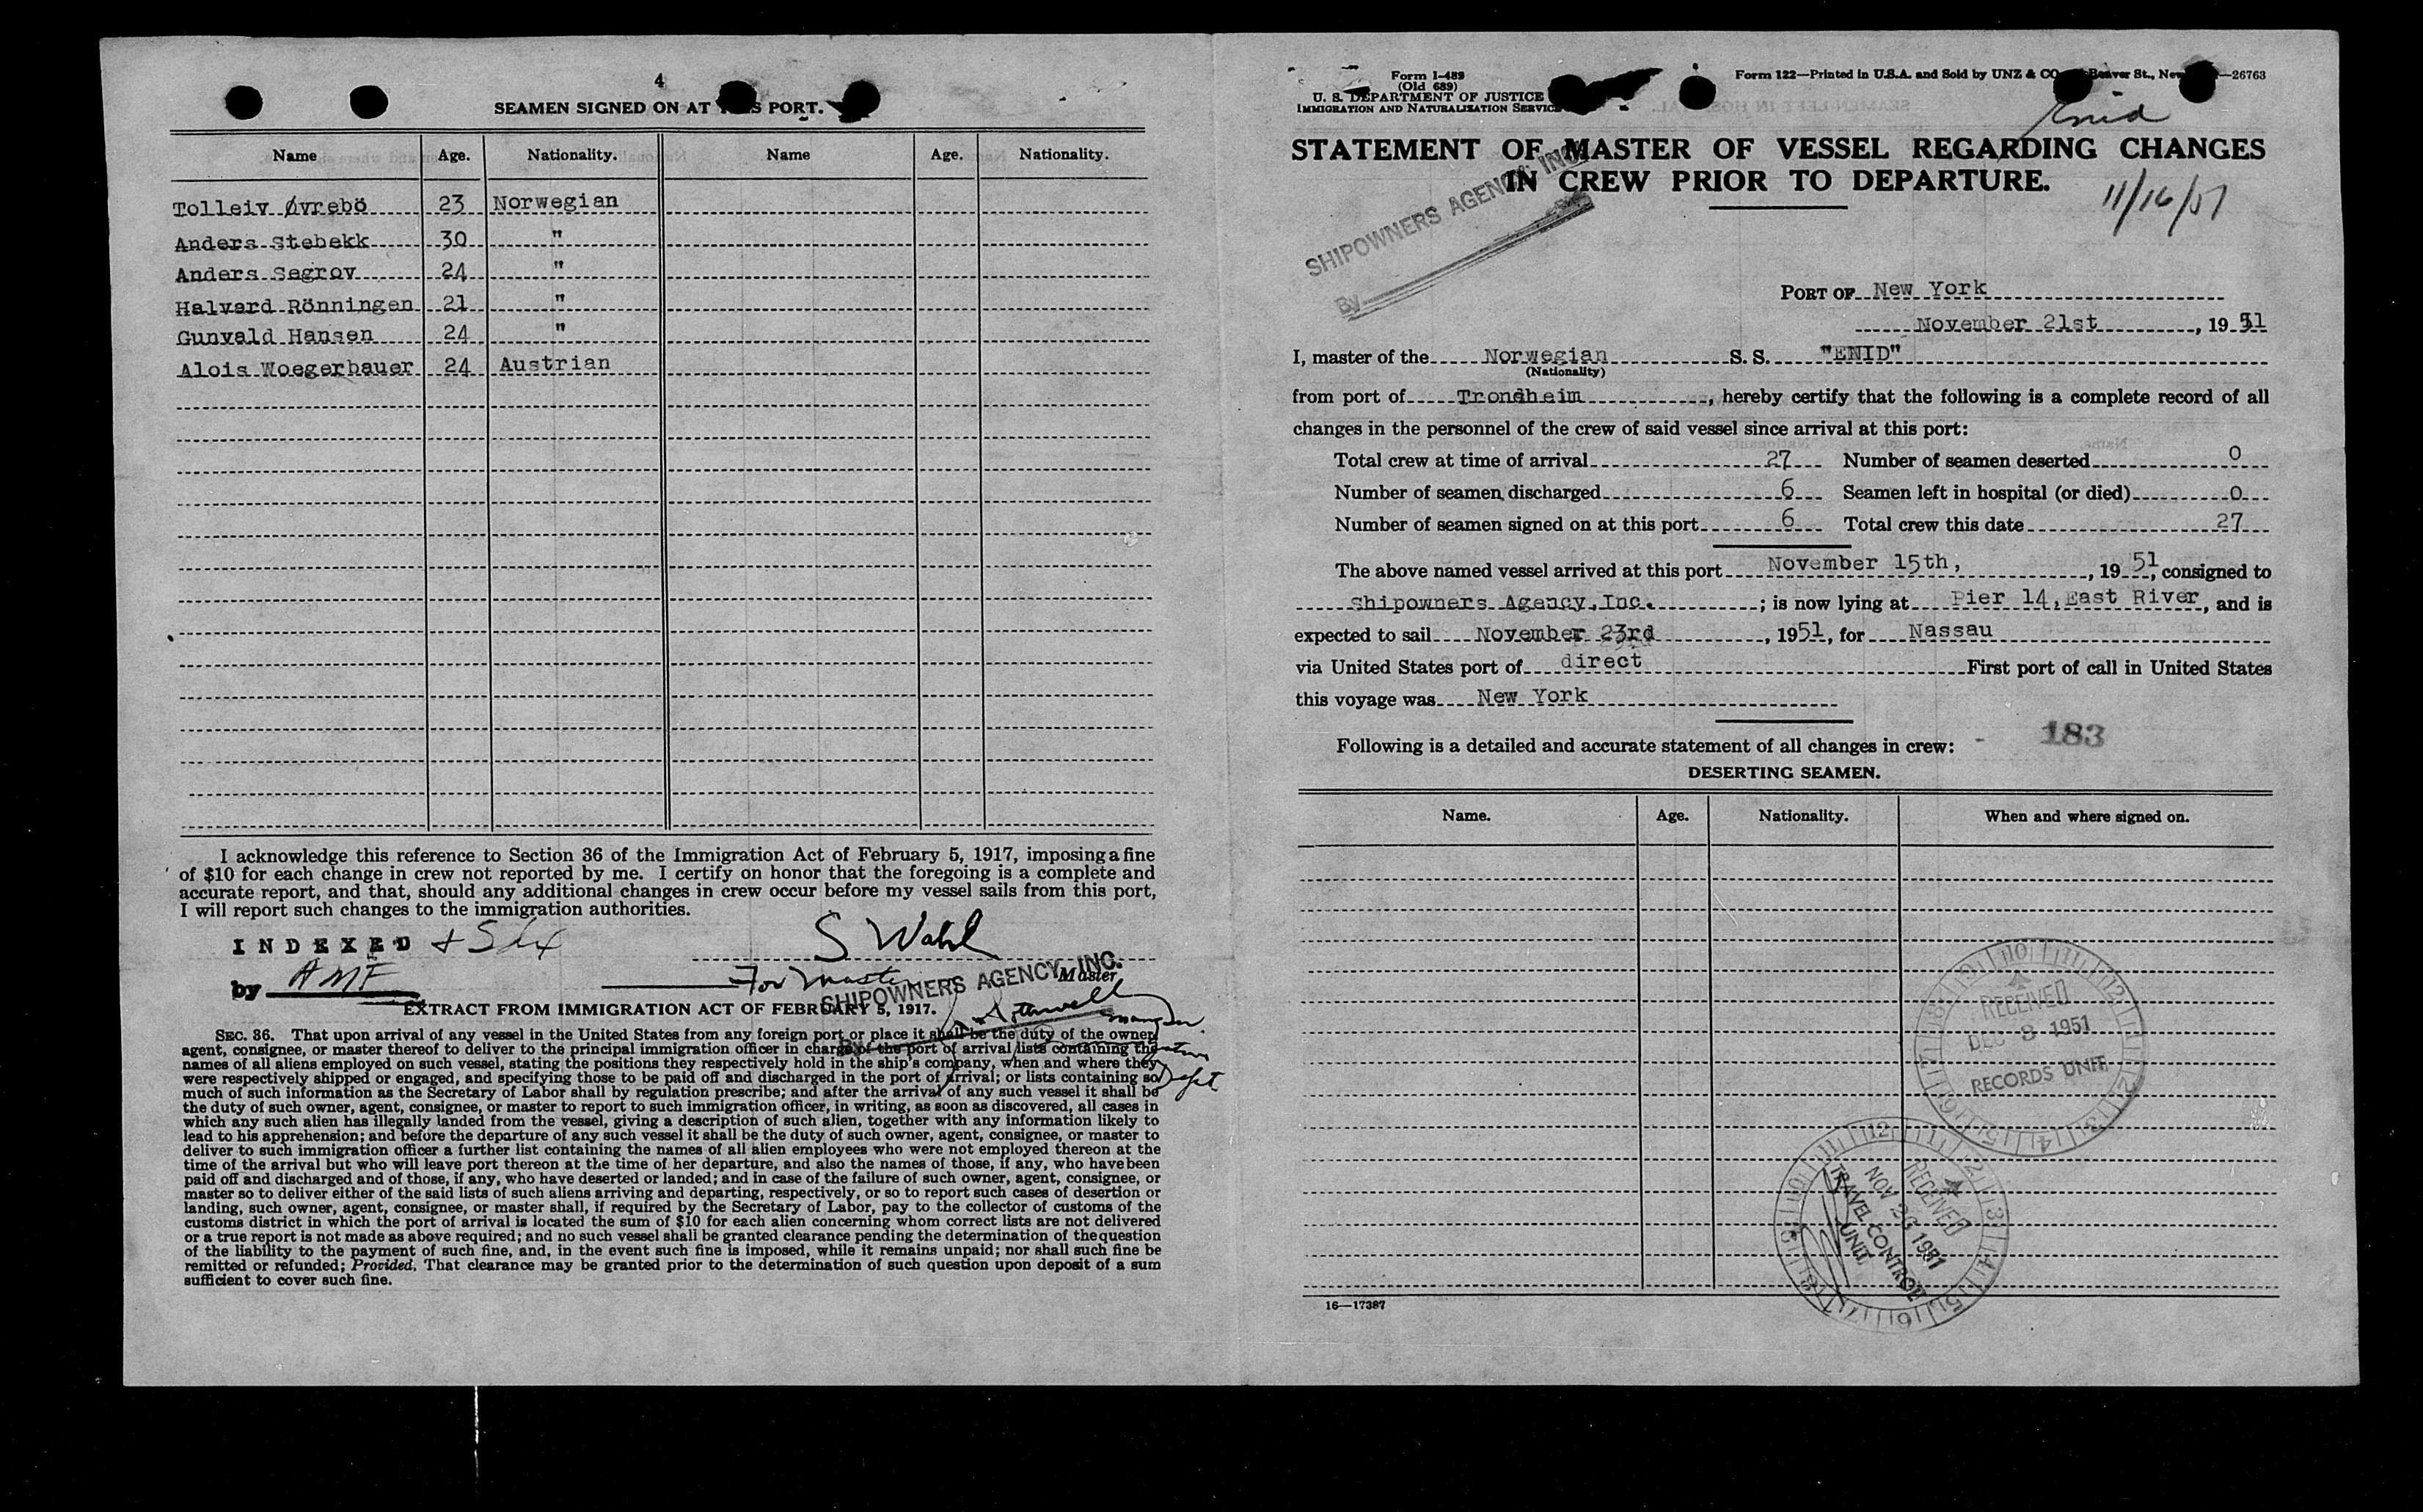 4
SEAMEN SIGNED ON AT PORT.
Name Age. Nationality. Name Age. Nationality.
Tolleiv Øvrebö 23 Norwegian
Anders Stebekk 30 "
Anders Segrov 24 "
Halvard Rönningen 21 "
Gunvald Hansen 24 "
Alois Woegerbauer 24 Austrian
I acknowledge this reference to Section 36 of the Immigration Act of February 5, 1917, imposing a fine
of $10 for each change in crew not reported by me. I certify on honor that the foregoing is a complete and
accurate report, and that, should any additional changes in crew occur before my vessel sails from this port,
I will report such changes to the immigration authorities.
INDEXED
by AMF
S Wahl
For Master
Master.
SHIPOWNERS AGENCY, INC.
EXTRACT FROM IMMIGRATION ACT OF FEBRUARY 5, 1917.
SEC. 36. That upon arrival of any vessel in the United States from any foreign port or place it shall be the duty of the owner,
agent, consignee, or master thereof to deliver to the principal immigration officer in charge of the port of arrival lists containing the
names of all aliens employed on such vessel, stating the positions they respectively hold in the ship's company, when and where they
were respectively shipped or engaged, and specifying those to be paid off and discharged in the port of arrival; or lists containing so
much of such information as the Secretary of Labor shall by regulation prescribe; and after the arrival of any such vessel it shall be
the duty of such owner, agent, consignee, or master to report to such immigration officer, in writing, as soon as discovered, all cases in
which any such alien has illegally landed from the vessel, giving a description of such alien, together with any information likely to
lead to his apprehension; and before the departure of any such vessel it shall be the duty of such owner, agent, consignee, or master to
deliver to such immigration officer a further list containing the names of all alien employees who were not employed thereon at the
time of the arrival but who will leave port thereon at the time of her departure, and also the names of those, if any, who have been
paid off and discharged and of those, if any, who have deserted or landed; and in case of the failure of such owner, agent, consignee, or
master so to deliver either of the said lists of such aliens arriving and departing, respectively, or so to report such cases of desertion or
landing, such owner, agent, consignee, or master shall, if required by the Secretary of Labor, pay to the collector of customs of the
customs district in which the port of arrival is located the sum of $10 for each alien concerning whom correct lists are not delivered
or a true report is not made as above required; and no such vessel shall be granted clearance pending the determination of the question
of the liability to the payment of such fine, and, in the event such fine is imposed, while it remains unpaid; nor shall such fine be
remitted or refunded; Provided, That clearance may be granted prior to the determination of such question upon deposit of a sum
sufficient to cover such fine.
Form I-489
(Old 689)
U. S. DEPARTMENT OF JUSTICE
IMMIGRATION AND NATURALIZATION SERVICE
Form 122—Printed in U.S.A. and Sold by UNZ & CO. Beaver St., New —26763
Enid
STATEMENT OF MASTER OF VESSEL REGARDING CHANGES
IN CREW PRIOR TO DEPARTURE.
11/16/51
SHIPOWNERS AGENCY, INC.
By
PORT OF New York
November 21st, 1951
I, master of the Norwegian S. S. "ENID"
(Nationality)
from port of Trondheim, hereby certify that the following is a complete record of all
changes in the personnel of the crew of said vessel since arrival at this port:
Total crew at time of arrival 27 Number of seamen deserted 0
Number of seamen discharged 6 Seamen left in hospital (or died) 0
Number of seamen signed on at this port 6 Total crew this date 27
The above named vessel arrived at this port November 15th, , 1951, consigned to
Shipowners Agency, Inc. ; is now lying at Pier 14, East River, and is
expected to sail November 23rd, 1951, for Nassau
via United States port of direct First port of call in United States
this voyage was New York
183
Following is a detailed and accurate statement of all changes in crew:
DESERTING SEAMEN.
Name. Age. Nationality. When and where signed on.
RECEIVED
DEC 3 1951
RECORDS UNIT
RECEIVED
NOV 26 1951
TRAVEL CONTROL
UNIT
16—17387